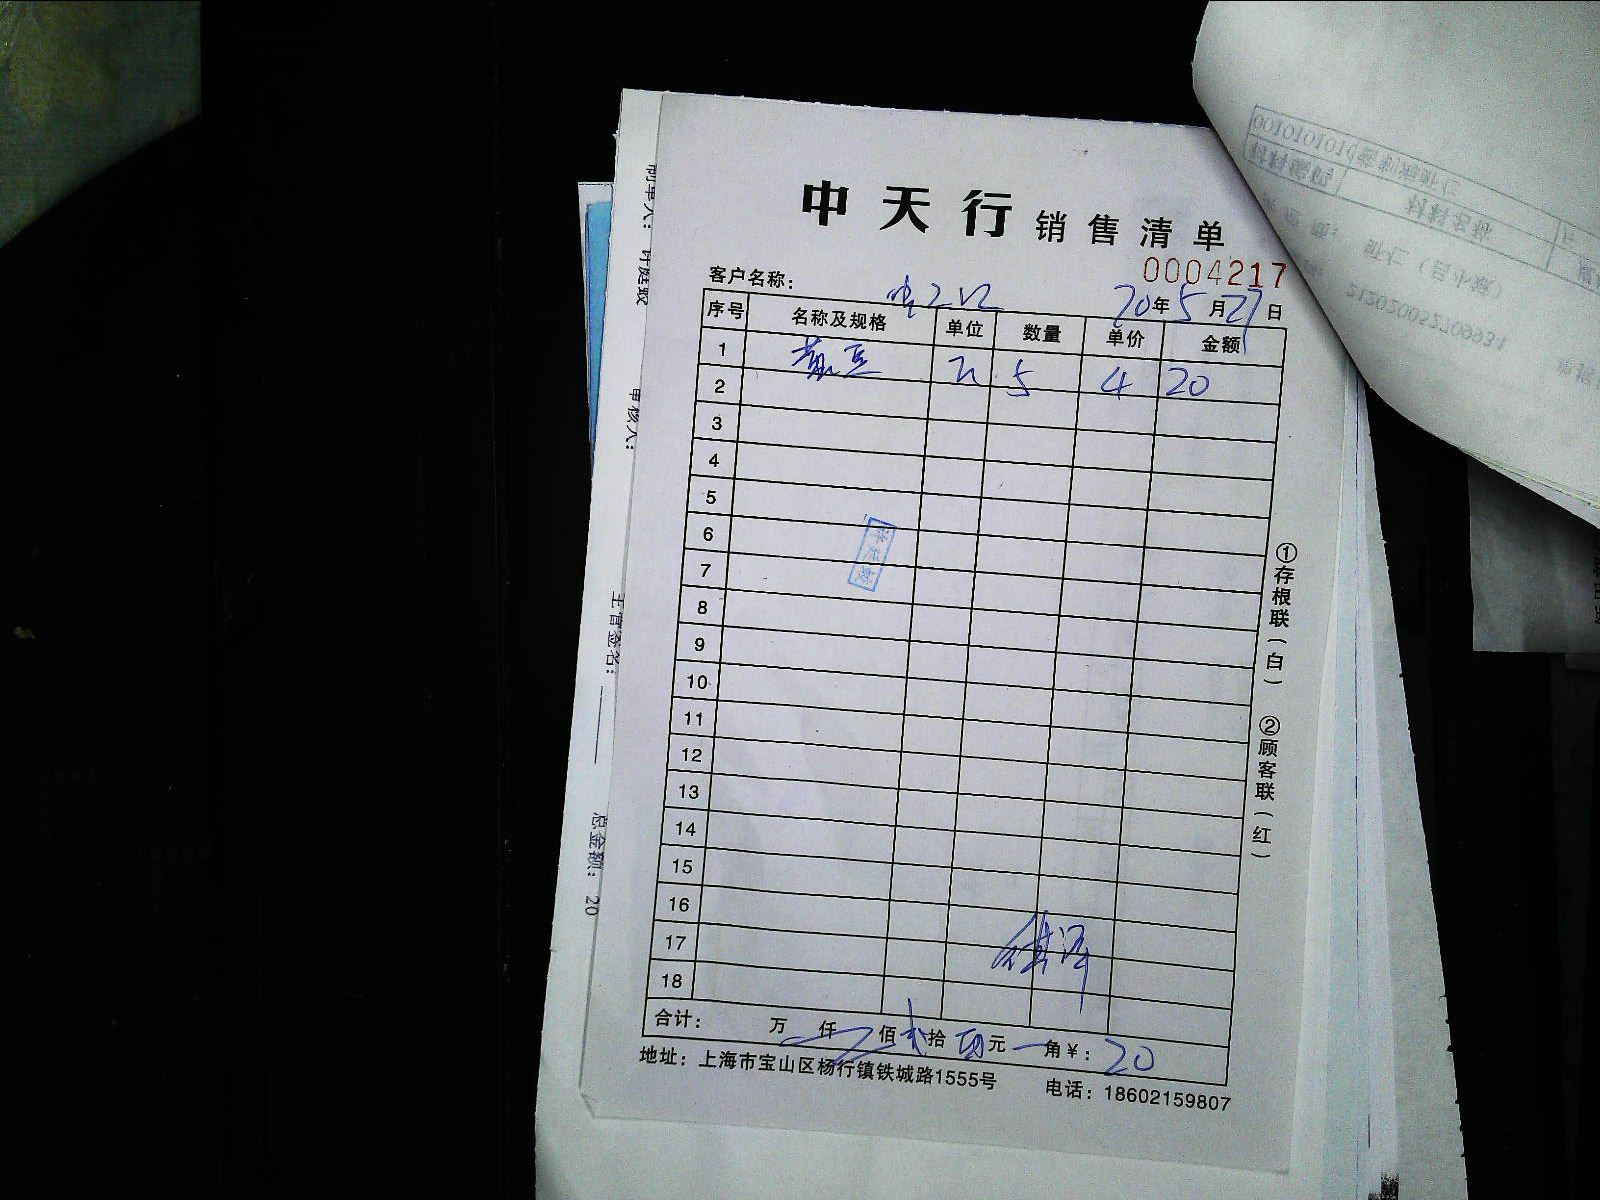 中天行 销售清单
0004217
客户名称：
20年5月27日
序号 名称及规格 单位 数量 单价 金额
1 黄豆 5 4 20
2
3
4
5
6
7
8
9
10
11
12
13
14
15
16
17
18
合计： 万 仟 佰 贰拾 元 角￥：20
地址：上海市宝山区杨行镇铁城路1555号 电话：18602159807
①存根联（白） ②顾客联（红）
制单人：许廷敏
审核人：
主管签名：
总金额：20
许廷敏
材料编码
材料名称
212020052709934